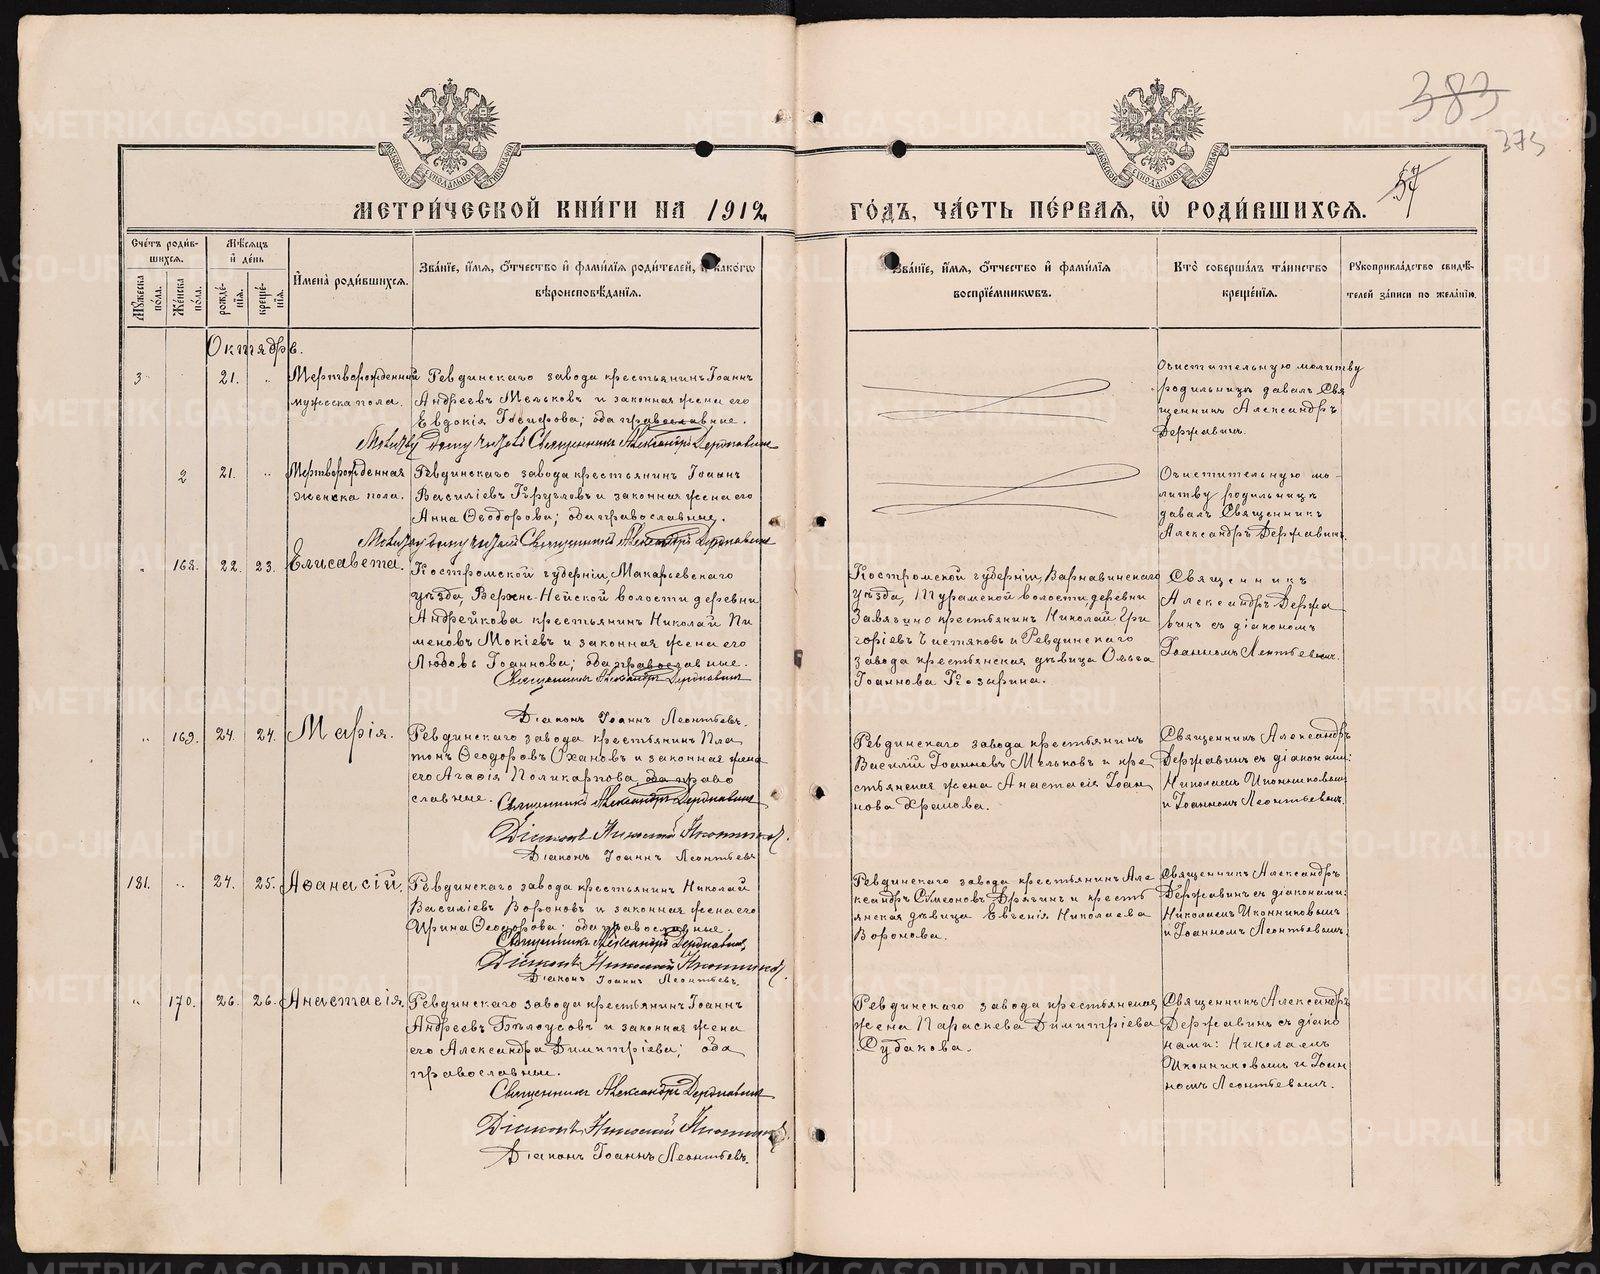 383
375
57
МЕТРИ́ЧЕСКОЙ КНИ́ГИ НА 1912
ГО́ДЪ, ЧА́СТЬ ПЕ́РВАЯ, Ѡ҆ РОДИ́ВШИХСЯ.
Сче́тъ роди́в-
шихся.
Мѣ́сяцъ
и҆ де́нь
Мꙋ́жеска по́ла.
Же́нска по́ла.
рожде́-
нїѧ.
креще́-
нїѧ.
И҆мена̀ роди́вшихся.
Зва́нїе, и҆́мѧ, ѻ҆́тчество и҆ фами́лїѧ роди́телей, и҆ како́гѡ
вѣроисповѣ́данїѧ.
Зва́нїе, и҆́мѧ, ѻ҆́тчество и҆ фами́лїѧ
воспрїе́мникѡвъ.
Кто̀ соверша́лъ та́инство
креще́нїѧ.
Рꙋкоприкла́дство свидѣ́-
телей за́писи по жела́нїю.
Октябрь.
3
21.
Мертворожденный
мужеска пола.
Ревдинскаго завода крестьянинъ Іоаннъ
Андреевъ Мельковъ и законная жена его
Евдокія Іосифова; оба православные.
Молитву дому читалъ Священникъ Александръ Державинъ
Очистительную молитву
родильницѣ давалъ Свя
щенникъ Александръ
Державинъ.
2
21.
Мертворожденная
женска пола.
Ревдинскаго завода крестьянинъ Іоаннъ
Василіевъ Кругловъ и законная жена его
Анна Ѳеодорова; оба православные.
Молитву дому читалъ Священникъ Александръ Державинъ
Очистительную мо-
литву родильницѣ
давалъ Священникъ
Александръ Державинъ.
168.
22.
23.
Елисавета.
Костромской губерніи, Макарьевскаго
уѣзда, Верхне-Нейской волости деревни
Андрейкова крестьянинъ Николай Пи
меновъ Мокіевъ и законная жена его
Любовь Іоаннова; оба православные.
Священникъ Александръ Державинъ
Діаконъ Іоаннъ Леонтьевъ.
Костромской губерніи, Варнавинскаго
уѣзда, Шурамской волости деревни
Завягино крестьянинъ Николай Гри
горіевъ Чистяковъ и Ревдинскаго
завода крестьянская дѣвица Ольга
Іоаннова Козырина.
Священникъ
Александръ Держа
винъ съ діакономъ
Іоанномъ Леонтьевымъ.
169.
24.
24.
Марія.
Ревдинскаго завода крестьянинъ Пла
тонъ Ѳеодоровъ Охановъ и законная жена
его Агаѳія Поликарпова, оба право
славные.
Священникъ Александръ Державинъ
Діаконъ Николай Иконниковъ.
Діаконъ Іоаннъ Леонтьевъ
Ревдинскаго завода крестьянинъ
Василій Іоанновъ Мельковъ и кре
стьянская жена Анастасія Іоан
нова Храмова.
Священникъ Александръ
Державинъ съ діаконами:
Николаемъ Иконниковымъ
и Іоанномъ Леонтьевымъ.
181.
24.
25.
Аѳанасій.
Ревдинскаго завода крестьянинъ Николай
Василіевъ Вороновъ и законная жена его
Ирина Ѳеодорова; оба православные.
Священникъ Александръ Державинъ
Діаконъ Николай Иконниковъ.
Діаконъ Іоаннъ Леонтьевъ.
Ревдинскаго завода крестьянинъ Але
ксандръ Симеоновъ Дрягинъ и кресть
янская дѣвица Евгенія Николаева
Воронова.
Священникъ Александръ
Державинъ съ діаконами:
Николаемъ Иконниковымъ
и Іоанномъ Леонтьевымъ.
170.
26.
26.
Анастасія.
Ревдинскаго завода крестьянинъ Іоаннъ
Андреевъ Бѣлоусовъ и законная жена
его Александра Димитріева; оба
православные.
Священникъ Александръ Державинъ
Діаконъ Николай Иконниковъ
Діаконъ Іоаннъ Леонтьевъ.
Ревдинскаго завода крестьянская
жена Параскева Димитріева
Субакова.
Священникъ Александръ
Державинъ съ діако
нами: Николаемъ
Иконниковымъ и Іоан
номъ Леонтьевымъ.
METRIKI.GASO-URAL.RU